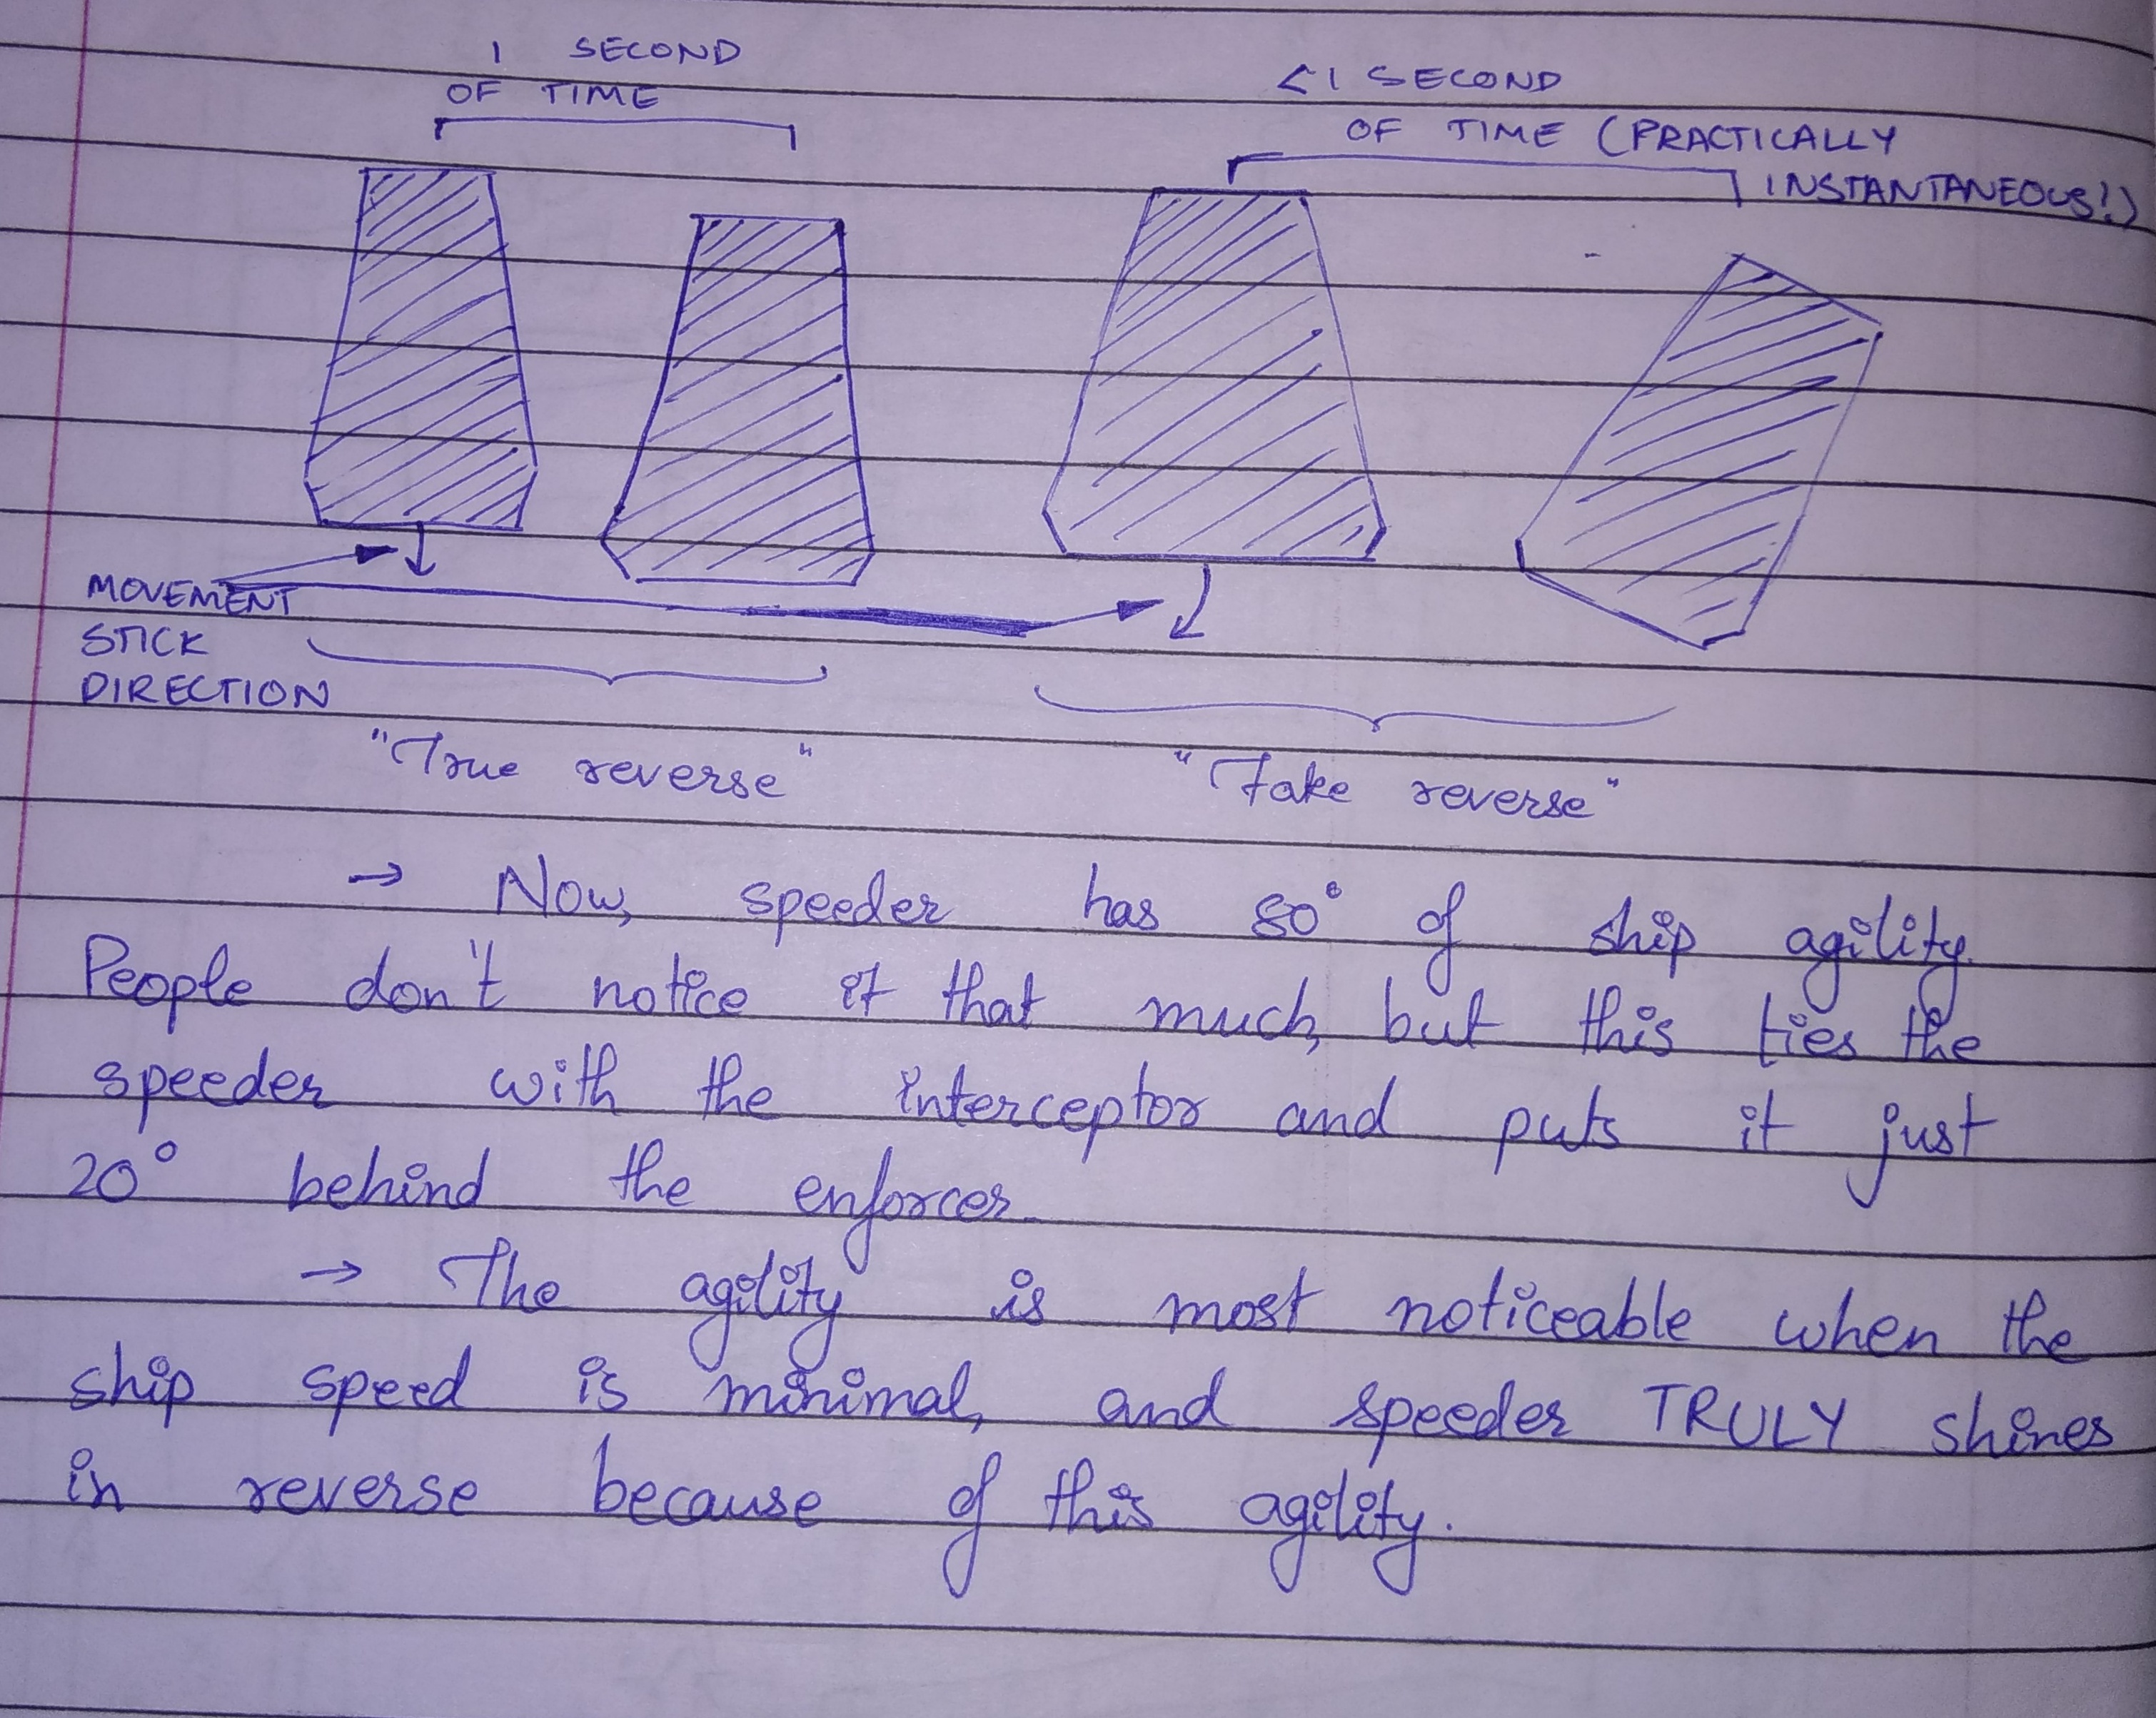 1 SECOND
OF TIME
<1 SECOND
OF TIME (PRACTICALLY
INSTANTANEOUS!)
MOVEMENT
STICK
DIRECTION
"True reverse"
"Fake reverse"
→ Now, speeder has 80° of ship agility.
People don't notice it that much, but this ties the
speeder with the interceptor and puts it just
20° behind the enforcer.
→ The agility is most noticeable when the
ship speed is minimal, and speeder TRULY shines
in reverse because of this agility.